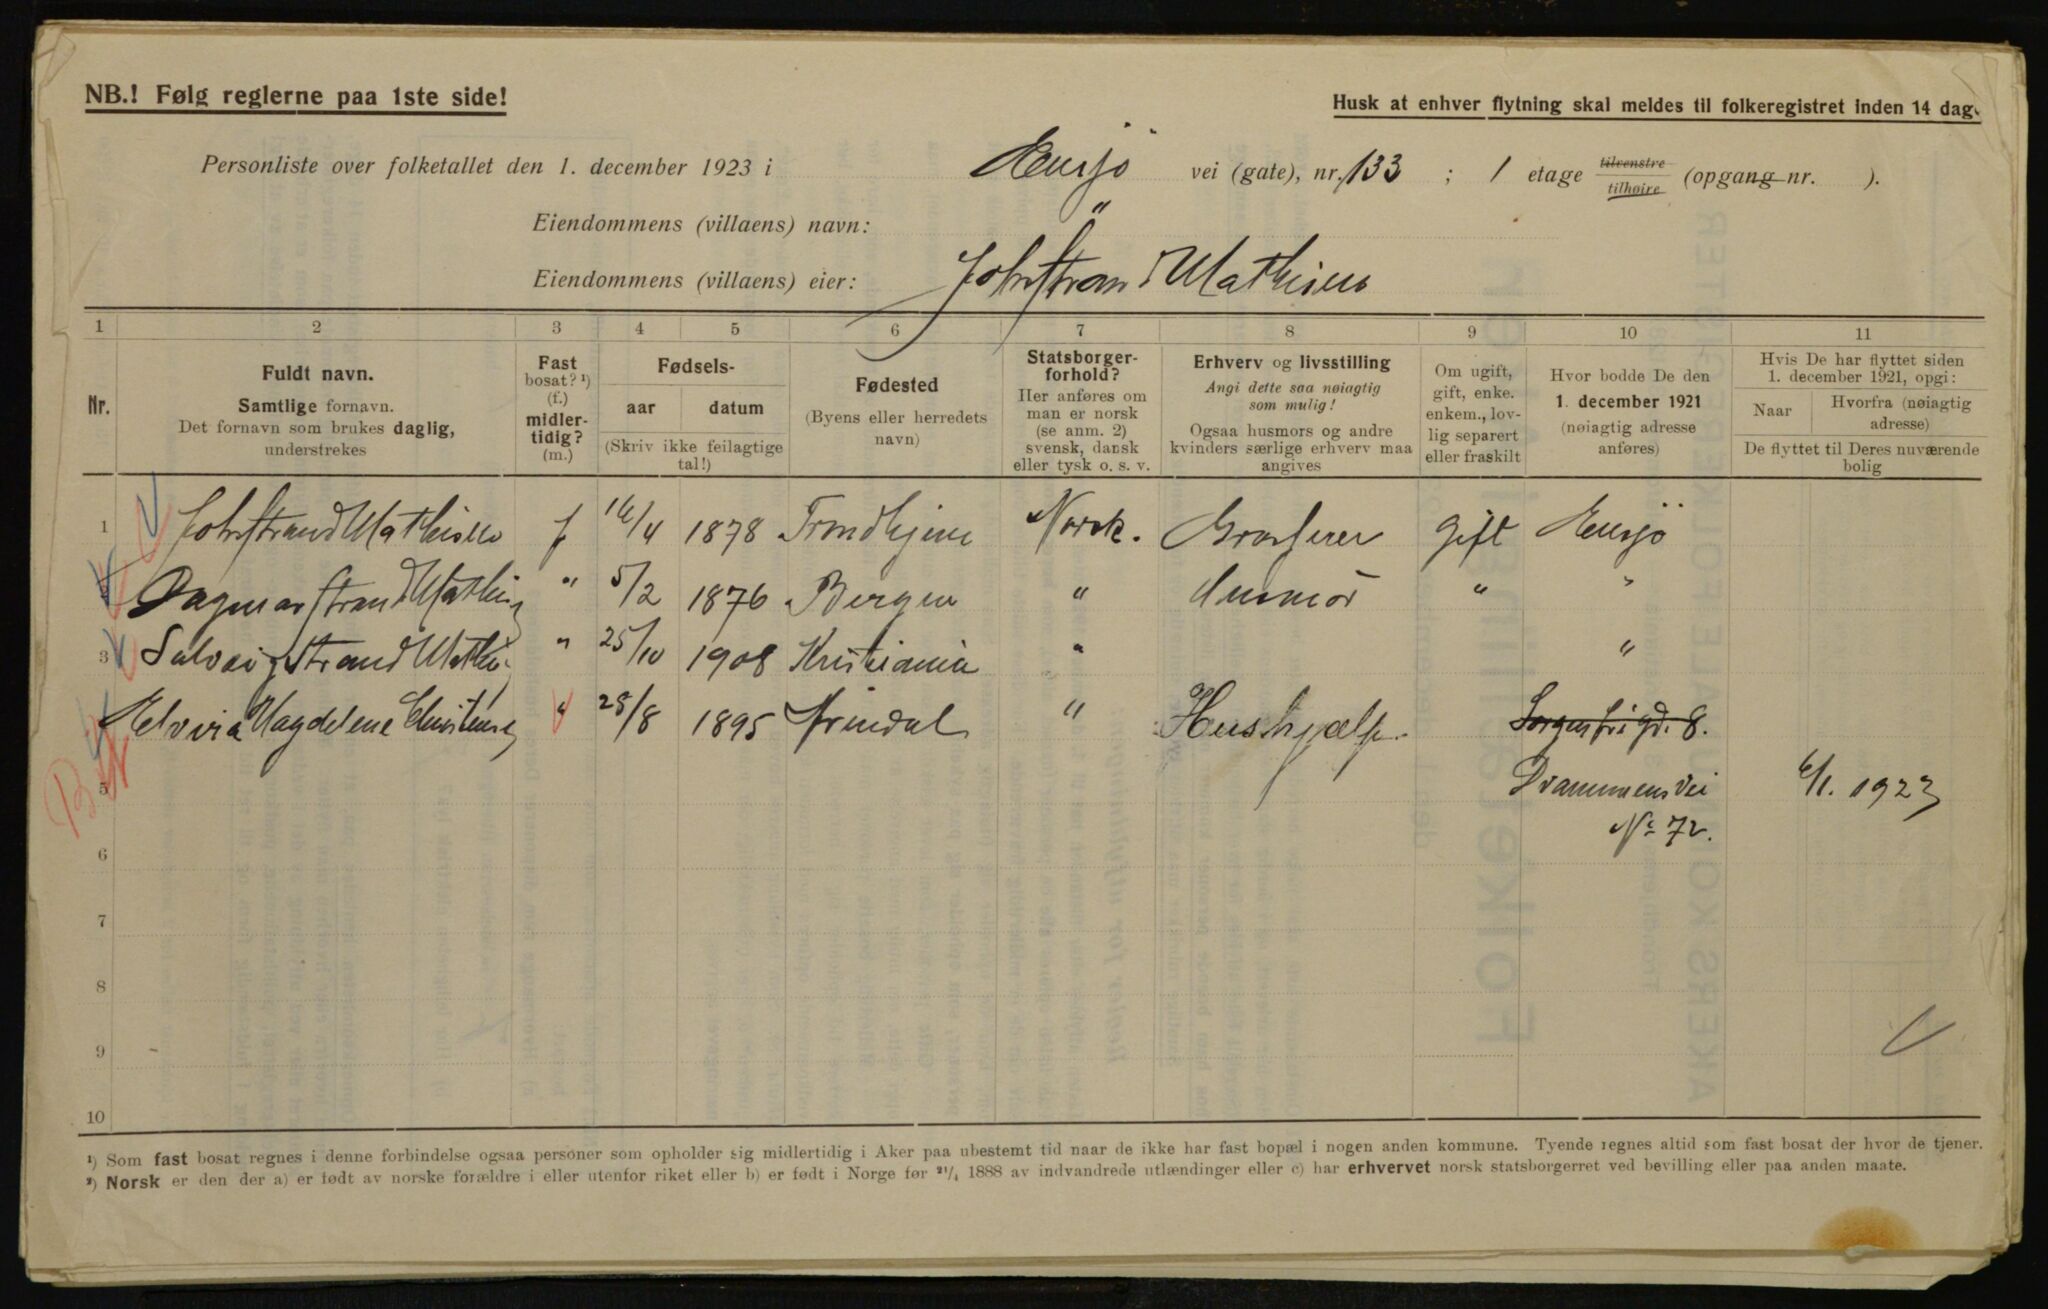 NB.! Følg reglerne paa 1ste side!
Husk at enhver flytning skal meldes til folkeregistret inden 14 dage
Personliste over folketallet den 1. december 1923 i Ensjö vei (gate), nr. 133 ; 1 etage tilvenstre tilhøire (opgang nr. ).
Eiendommens (villaens) navn: "
Eiendommens (villaens) eier: Johs Strand Mathisen
1 2 3 4 5 6 7 8 9 10 11
Nr.
Fuldt navn.
Samtlige fornavn.
Det fornavn som brukes daglig,
understrekes
Fast
bosat? ¹)
(f.)
midler-
tidig?
(m.)
Fødsels-
aar datum
(Skriv ikke feilagtige
tal!)
Fødested
(Byens eller herredets
navn)
Statsborger-
forhold?
Her anføres om
man er norsk
(se anm. 2)
svensk, dansk
eller tysk o. s. v.
Erhverv og livsstilling
Angi dette saa nøiagtig
som mulig!
Ogsaa husmors og andre
kvinders særlige erhverv maa
angives
Om ugift,
gift, enke.
enkem., lov-
lig separert
eller fraskilt
Hvor bodde De den
1. december 1921
(nøiagtig adresse
anføres)
Hvis De har flyttet siden
1. december 1921, opgi:
Naar
Hvorfra (nøiagtig
adresse)
De flyttet til Deres nuværende
bolig
1 Johs Strand Mathisen f 16/4 1878 Trondhjem Norsk. Grosserer gift Ensjö
Dagmar Strand Mathis " 5/2 1876 Bergen " Husmor " "
3 Solveig Strand Mathis " 25/10 1908 Kristiania " "
Elvira Magdelene Christensen " 28/8 1895 Arendal " Hushjælp. Sorgenfrigd. 8.
5 Drammensvei 6/1. 1923
No 72.
6
7
8
9
10
¹) Som fast bosat regnes i denne forbindelse ogsaa personer som opholder sig midlertidig i Aker paa ubestemt tid naar de ikke har fast bopæl i nogen anden kommune. Tyende regnes altid som fast bosat der hvor de tjener.
²) Norsk er den der a) er født av norske forældre i eller utenfor riket eller b) er født i Norge før 21/4 1888 av indvandrede utlændinger eller c) har erhvervet norsk statsborgerret ved bevilling eller paa anden maate.